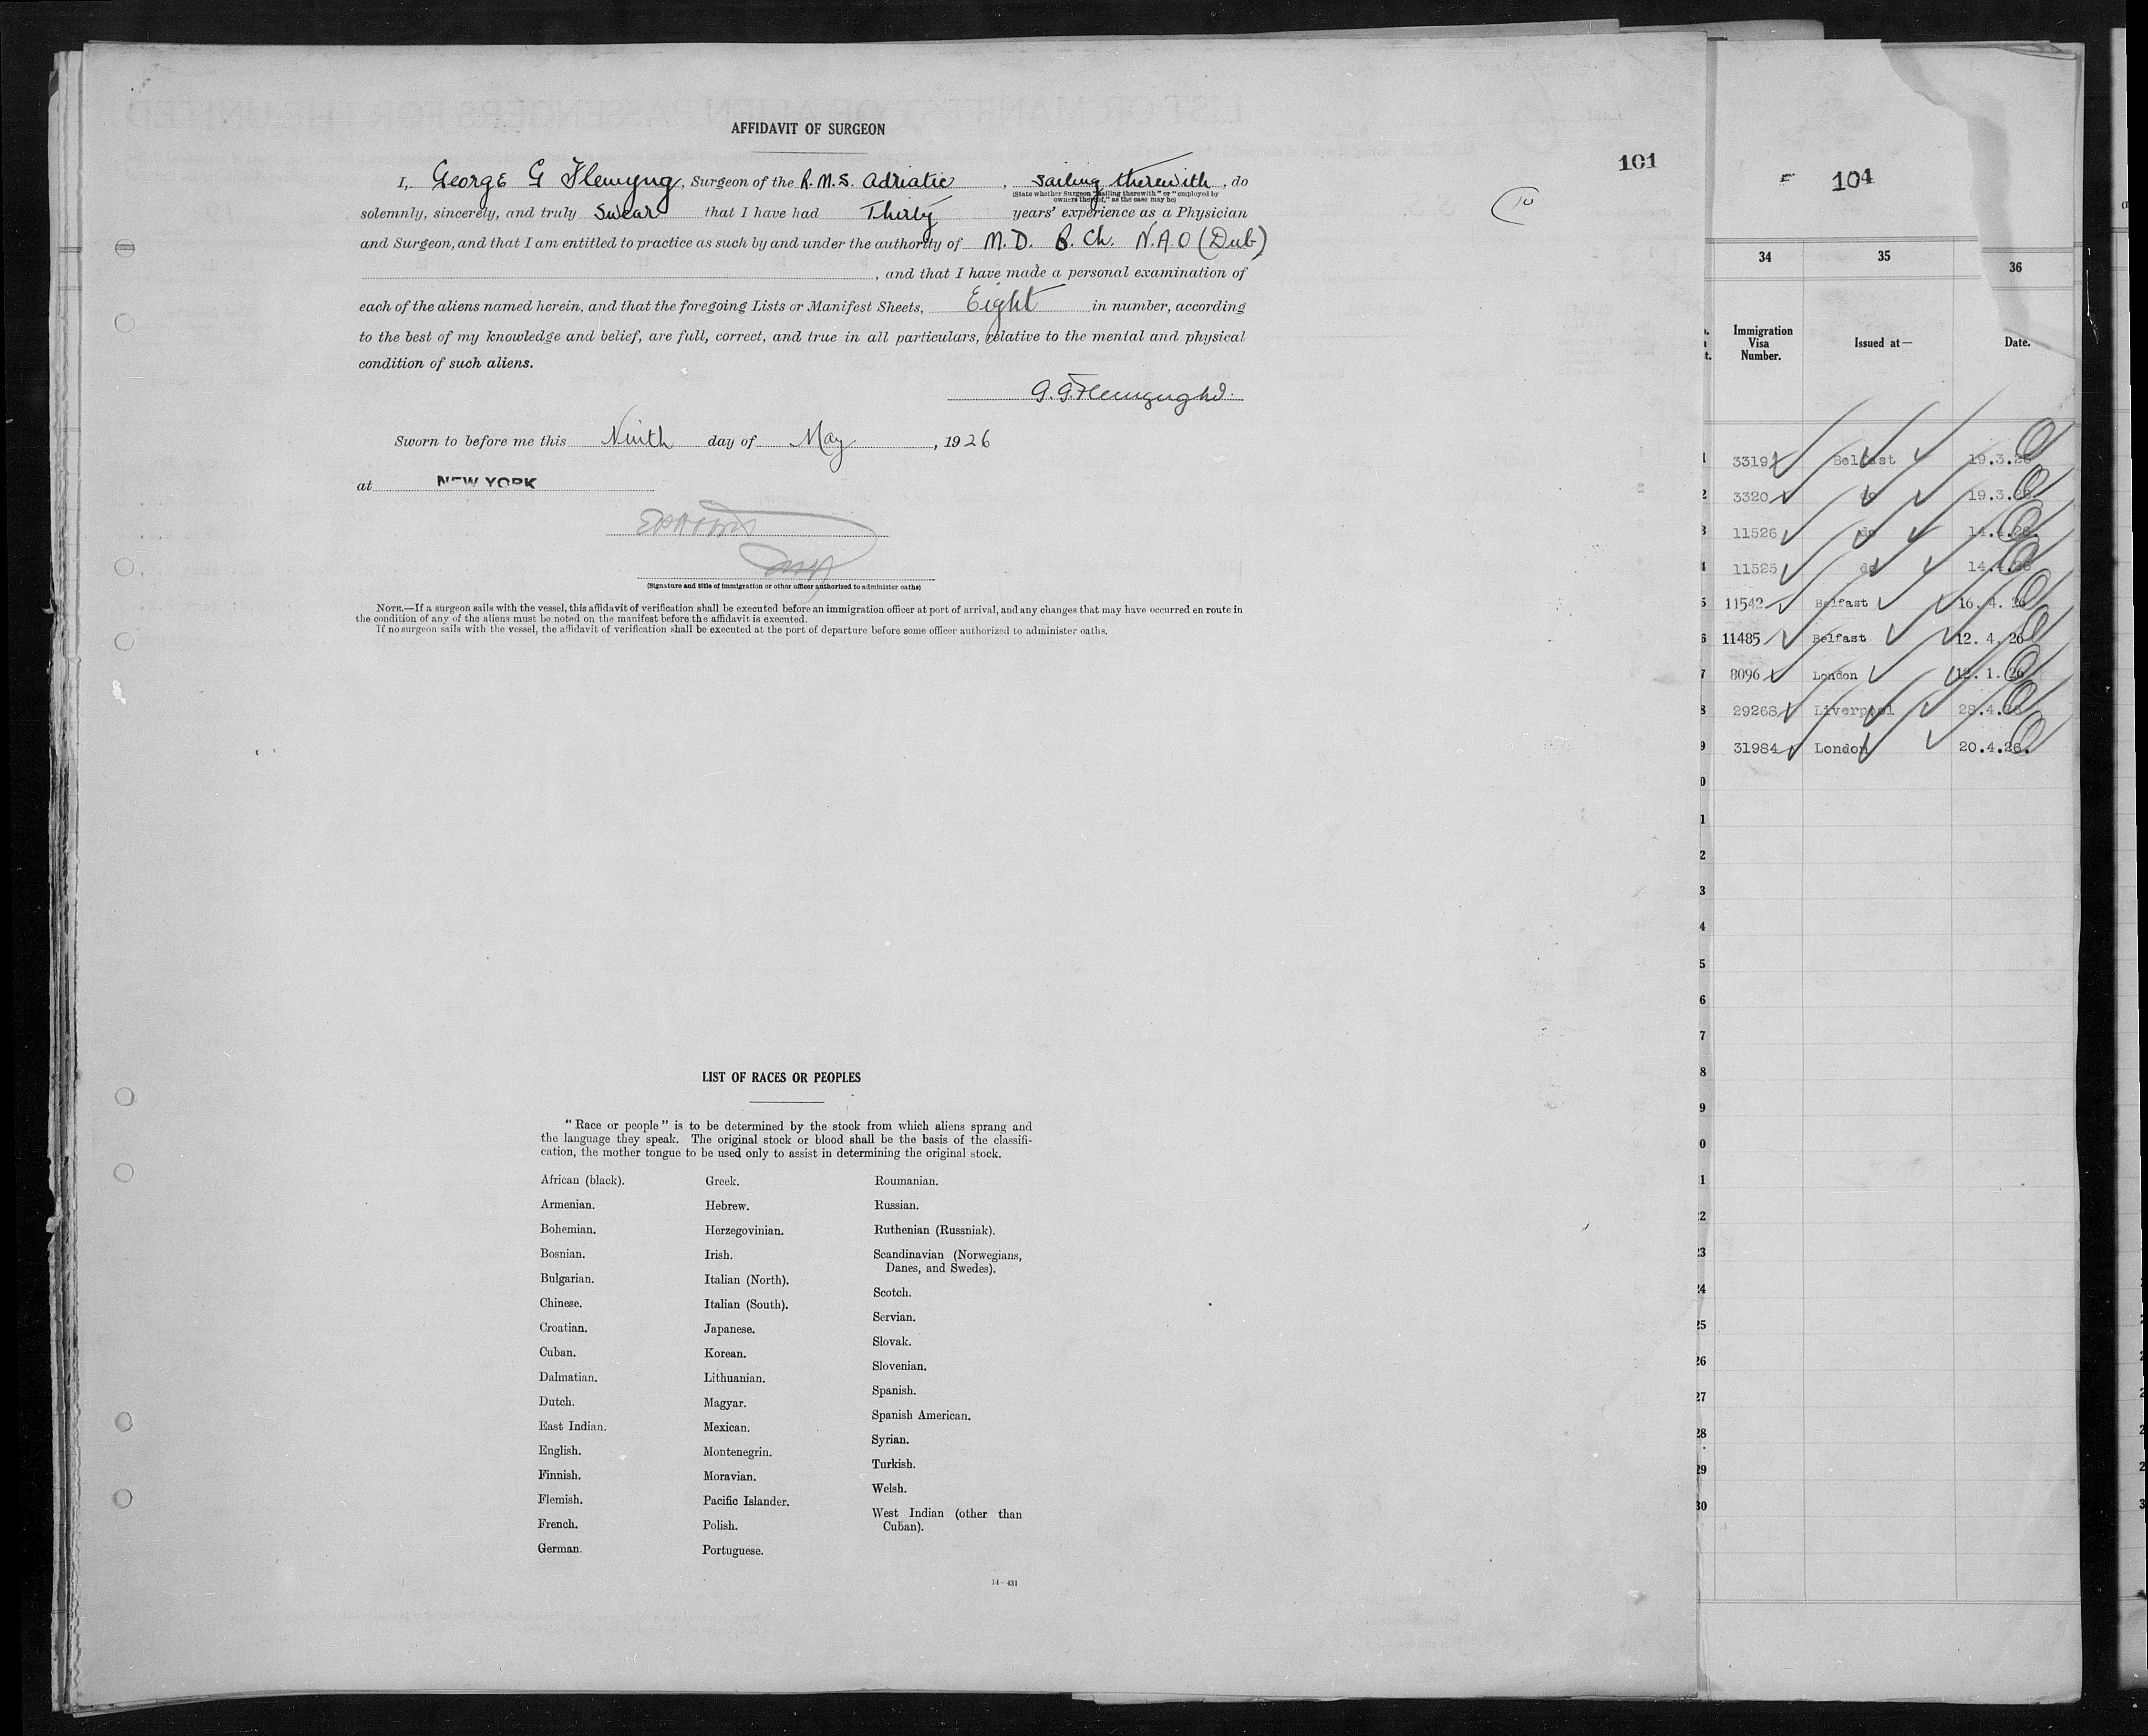 AFFIDAVIT OF SURGEON
101
I, George G Flemyng, Surgeon of the R.M.S. Adriatic, sailing therewith, do
(State whether Surgeon "sailing therewith" or "employed by
owners thereof," as the case may be)
solemnly, sincerely, and truly Swear that I have had Thirty years' experience as a Physician
and Surgeon, and that I am entitled to practice as such by and under the authority of M.D. B. Ch. N.A.O (Dub)
, and that I have made a personal examination of
each of the aliens named herein, and that the foregoing Lists or Manifest Sheets, Eight in number, according
to the best of my knowledge and belief, are full, correct, and true in all particulars, relative to the mental and physical
condition of such aliens.
G. G. Flemyng
Sworn to before me this Ninth day of May, 1926
at NEW YORK
(Signature and title of immigration or other officer authorized to administer oaths)
NOTE.—If a surgeon sails with the vessel, this affidavit of verification shall be executed before an immigration officer at port of arrival, and any changes that may have occurred en route in
the condition of any of the aliens must be noted on the manifest before the affidavit is executed.
If no surgeon sails with the vessel, the affidavit of verification shall be executed at the port of departure before some officer authorized to administer oaths.
LIST OF RACES OR PEOPLES
"Race or people" is to be determined by the stock from which aliens sprang and
the language they speak. The original stock or blood shall be the basis of the classifi-
cation, the mother tongue to be used only to assist in determining the original stock.
African (black).
Armenian.
Bohemian.
Bosnian.
Bulgarian.
Chinese.
Croatian.
Cuban.
Dalmatian.
Dutch.
East Indian.
English.
Finnish.
Flemish.
French.
German.
Greek.
Hebrew.
Herzegovinian.
Irish.
Italian (North).
Italian (South).
Japanese.
Korean.
Lithuanian.
Magyar.
Mexican.
Montenegrin.
Moravian.
Pacific Islander.
Polish.
Portuguese.
Roumanian.
Russian.
Ruthenian (Russniak).
Scandinavian (Norwegians,
Danes, and Swedes).
Scotch.
Servian.
Slovak.
Slovenian.
Spanish.
Spanish American.
Syrian.
Turkish.
Welsh.
West Indian (other than
Cuban).
14—431
104
34 35 36
Immigration
Visa
Number.
Issued at—
Date.
1 3319 Belfast 19.3.26
2 3320 do 19.3.26
3 11526 do 14.4.26.
4 11525 do 14.4.26
5 11542 Belfast 16.4.26
6 11485 Belfast 12.4.26
7 8096 London 12.1.26
8 29268 Liverpool 28.4.26
9 31984 London 20.4.26.
0
1
2
3
4
5
6
7
8
9
0
1
22
23
24
25
26
27
28
29
30